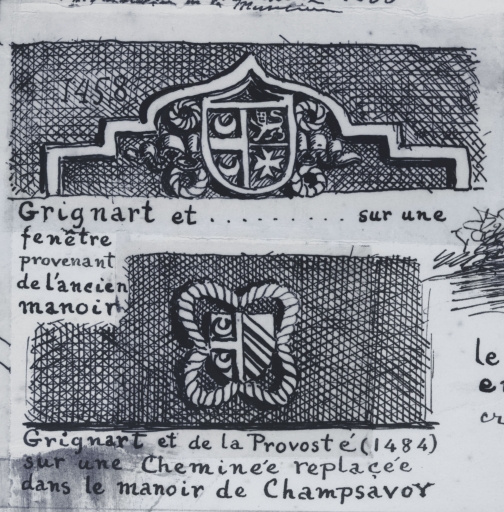 1458
Grignart et .......... sur une
fenêtre
provenant
de l'ancien
manoir
le
Grignart et de la Provosté (1484)
sur une Cheminée replaçée
dans le manoir de Champsavoy